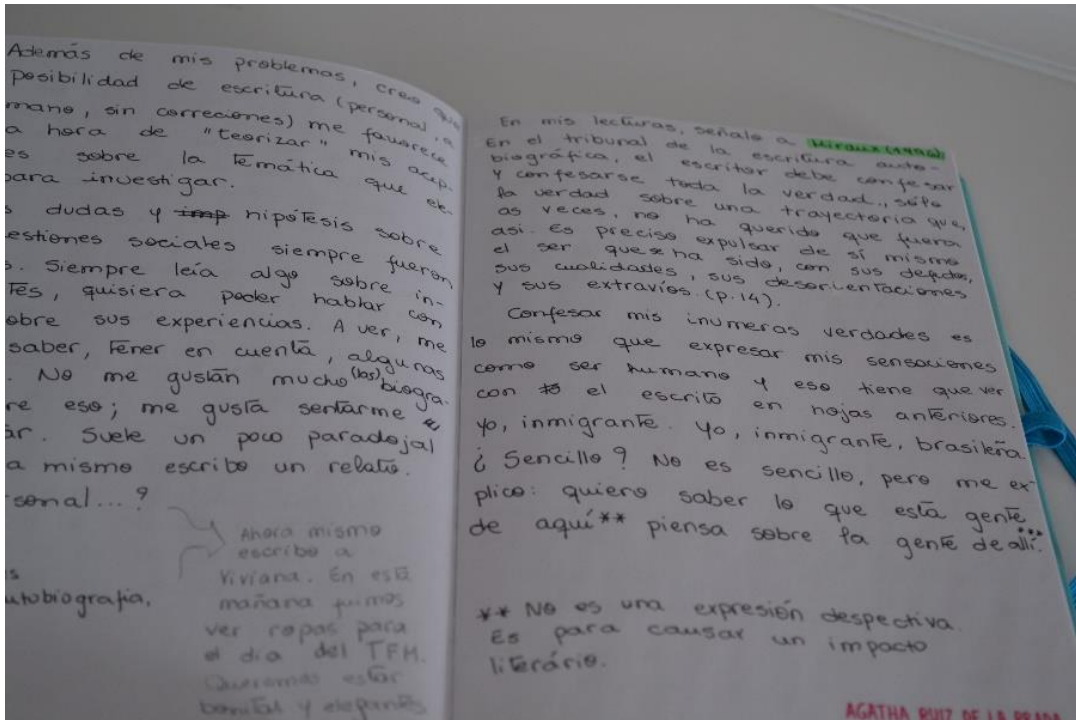 Además de mis problemas, creo que
posibilidad de escritura (personal, a
mano, sin correciones) me favorece
a hora de "teorizar" mis acep-
es sobre la temática que ele-
para investigar.
s dudas y imp hipótesis sobre
estiones sociales siempre fueron
s. Siempre leía algo sobre in-
tes, quisiera poder hablar con
obre sus experiencias. A ver, me
saber, tener en cuenta, algunas
. No me gustan mucho (las) biogra-
re eso; me gusta sentarme a
ar. Suele un poco paradojal
a mismo escribo un relato.
rsonal...?
Ahora mismo
escribo a
Viviana. En esta
mañana fuimos
ver ropas para
el día del TFM.
Queramos estar
bonitas y elegantes
is
utobiografia,
En mis lecturas, señalo a Miraux (1996)
En el tribunal de la escritura auto-
biográfica, el escritor debe confesar
y confesarse toda la verdad, sólo
la verdad sobre una trayectoria que,
as veces, no ha querido que fuera
así. Es preciso expulsar de sí mismo
el ser que se ha sido, con sus defectos,
sus cualidades, sus desorientaciones
y sus extravíos. (p. 14).
Confesar mis inumeras verdades es
lo mismo que expresar mis sensaciones
como ser humano y eso tiene que ver
con el escrito en hojas anteriores.
yo, inmigrante. yo, inmigrante, brasileña.
¿Sencillo? No es sencillo, pero me ex-
plico: quiero saber lo que esta gente
de aquí** piensa sobre la gente de allí...
** No es una expresión despectiva.
Es para causar un impacto
literário.
AGATHA RUIZ DE LA PRADA